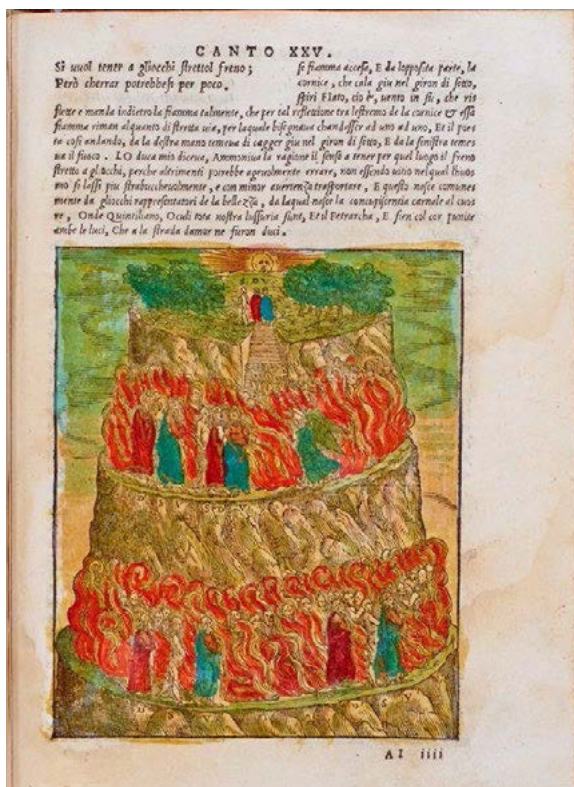 CANTO XXV.
Si uuol tener a gliocchi strettol freno;
Però cherrar potrebbesi per poco.
se fiamma accesa, E da lopposita parte, la
cornice, che cala giu nel giron di sotto,
spiri Flato, cio è, uento in su, che ris
flette e manda indietro la fiamma talmente, che per tal reflettione tra lestremo de la cornice & essa
fiamma riman alquanto di stretta uia, per laquale bisognaua chandasser ad uno ad uno, Et il poes
ta cosi andando, da la destra mano temeua di cagger giu nel giron di sotto, E da la sinistra temes
ua il fuoco. LO duca mio diceua, Ammoniua la ragione il senso a tener per quel luogo il freno
stretto a gliocchi, perche altrimenti potrebbe ageuolmente errare, non essendo uitio nelqual lhuos
mo si lassi piu strabuccheuolmente, e con minor auertenza trasportare, E questo nasce comunes
mente da gliocchi rappresentatori de la bellezza, da laqual nasce la concupiscentia carnale al cuos
re, Onde Quintiliano, Oculi tota nostra luxuria sunt, Et il Petrarcha, E sien col cor punite
ambe le luci, Che a la strada damor ne furon duci.
D V S
D V S V
AI iiii